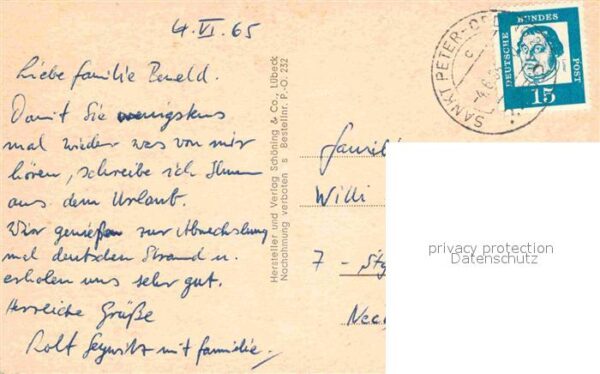 4.VI.65
Liebe Familie
Damit Sie wenigstens
mal wieder was von mir
hören, schreibe ich Ihnen
aus dem Urlaub.
Wir genießen zur Abwechslung
mal deutschen Strand u.
erholen uns sehr gut.
Herzliche Grüße
Rolf mit Familie.
Hersteller und Verlag Schöning & Co., Lübeck
Nachahmung verboten s Bestellnr. P.-O. 232
SANKT PETER-ORD
c
-4.6.
DEUTSCHE BUNDES POST
15
Famili
Willi
7 - Stg
Nec
privacy protection
Datenschutz